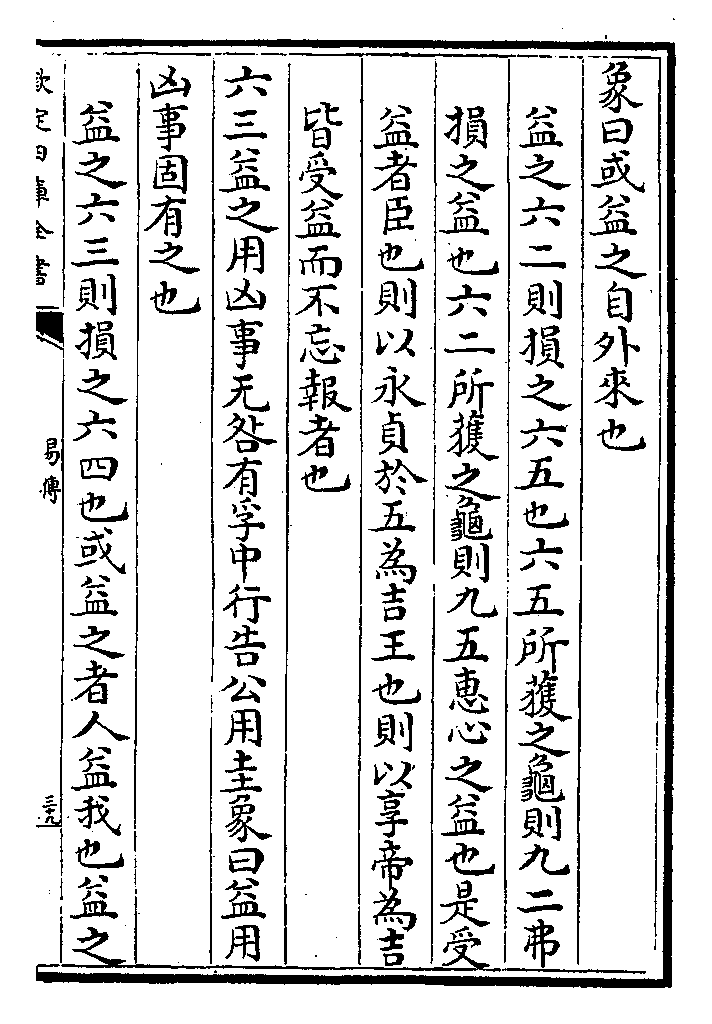 象曰或益之自外來也
益之六二則損之六五也六五所獲之龜則九二弗
損之益也六二所獲之龜則九五惠心之益也是受
益者臣也則以永貞於五為吉王也則以享帝為吉
皆受益而不忘報者也
六三益之用凶事无咎有孚中行告公用圭象曰益用
凶事固有之也
益之六三則損之六四也或益之者人益我也益之
欽定四庫全書
易傳
三九